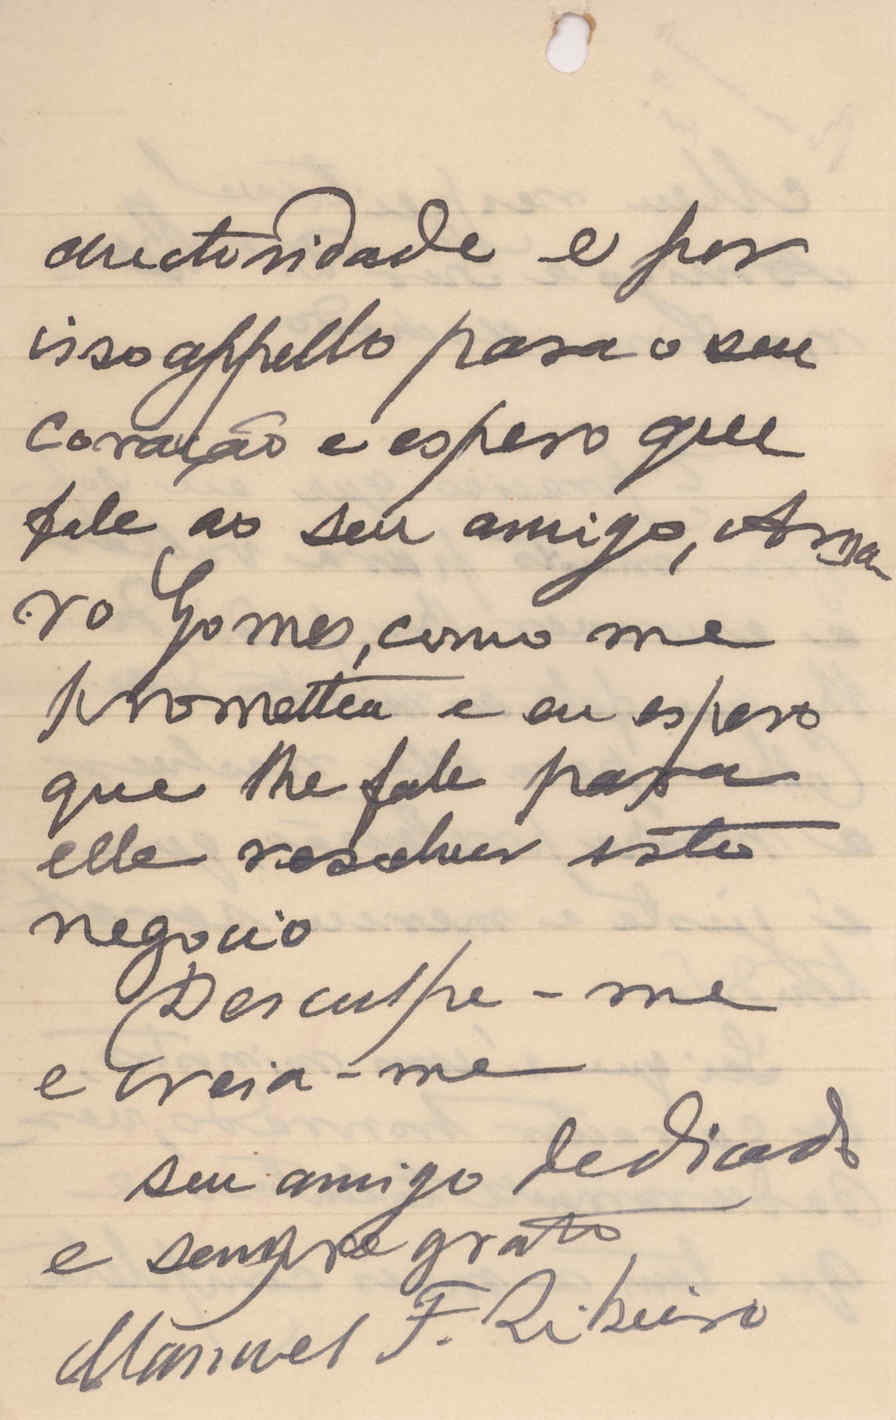 auctoridade e por
isso appello para o seu
coração e espero que
fale ao seu amigo, Ama
ro Gomes, como me
prometteu e eu espero
que lhe fale para
elle resolver isto
negocio
Desculpe-me
e creia-me
seu amigo dedicado
e sempre grato
Manuel F. Ribeiro